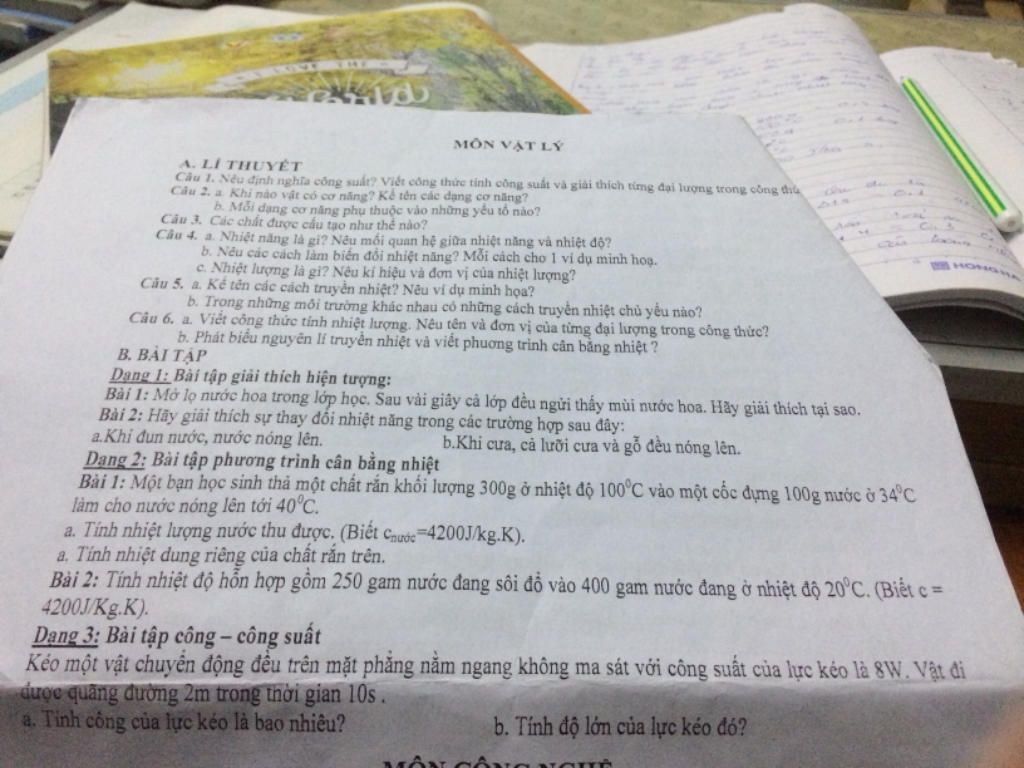 I LOVE THE
MÔN VẬT LÝ
A. LÍ THUYẾT
Câu 1. Nêu định nghĩa công suất? Viết công thức tính công suất và giải thích từng đại lượng trong công thứ
Câu 2. a. Khi nào vật có cơ năng? Kể tên các dạng cơ năng?
b. Mỗi dạng cơ năng phụ thuộc vào những yếu tố nào?
Câu 3. Các chất được cấu tạo như thế nào?
Câu 4. a. Nhiệt năng là gì? Nêu mối quan hệ giữa nhiệt năng và nhiệt độ?
b. Nêu các cách làm biến đổi nhiệt năng? Mỗi cách cho 1 ví dụ minh hoạ.
c. Nhiệt lượng là gì? Nêu kí hiệu và đơn vị của nhiệt lượng?
Câu 5. a. Kể tên các cách truyền nhiệt? Nêu ví dụ minh họa?
b. Trong những môi trường khác nhau có những cách truyền nhiệt chủ yếu nào?
Câu 6. a. Viết công thức tính nhiệt lượng. Nêu tên và đơn vị của từng đại lượng trong công thức?
b. Phát biểu nguyên lí truyền nhiệt và viết phuơng trình cân bằng nhiệt ?
B. BÀI TẬP
Dạng 1: Bài tập giải thích hiện tượng:
Bài 1: Mở lọ nước hoa trong lớp học. Sau vài giây cả lớp đều ngửi thấy mùi nước hoa. Hãy giải thích tại sao.
Bài 2: Hãy giải thích sự thay đổi nhiệt năng trong các trường hợp sau đây:
a.Khi đun nước, nước nóng lên. b.Khi cưa, cả lưỡi cưa và gỗ đều nóng lên.
Dạng 2: Bài tập phương trình cân bằng nhiệt
Bài 1: Một bạn học sinh thả một chất rắn khối lượng 300g ở nhiệt độ 100⁰C vào một cốc đựng 100g nước ở 34⁰C
làm cho nước nóng lên tới 40⁰C.
a. Tính nhiệt lượng nước thu được. (Biết cnước=4200J/kg.K).
a. Tính nhiệt dung riêng của chất rắn trên.
Bài 2: Tính nhiệt độ hỗn hợp gồm 250 gam nước đang sôi đổ vào 400 gam nước đang ở nhiệt độ 20⁰C. (Biết c =
4200J/Kg.K).
Dạng 3: Bài tập công – công suất
Kéo một vật chuyển động đều trên mặt phẳng nằm ngang không ma sát với công suất của lực kéo là 8W. Vật đi
được quãng đường 2m trong thời gian 10s .
a. Tính công của lực kéo là bao nhiêu? b. Tính độ lớn của lực kéo đó?
MÔN CÔNG NGHỆ